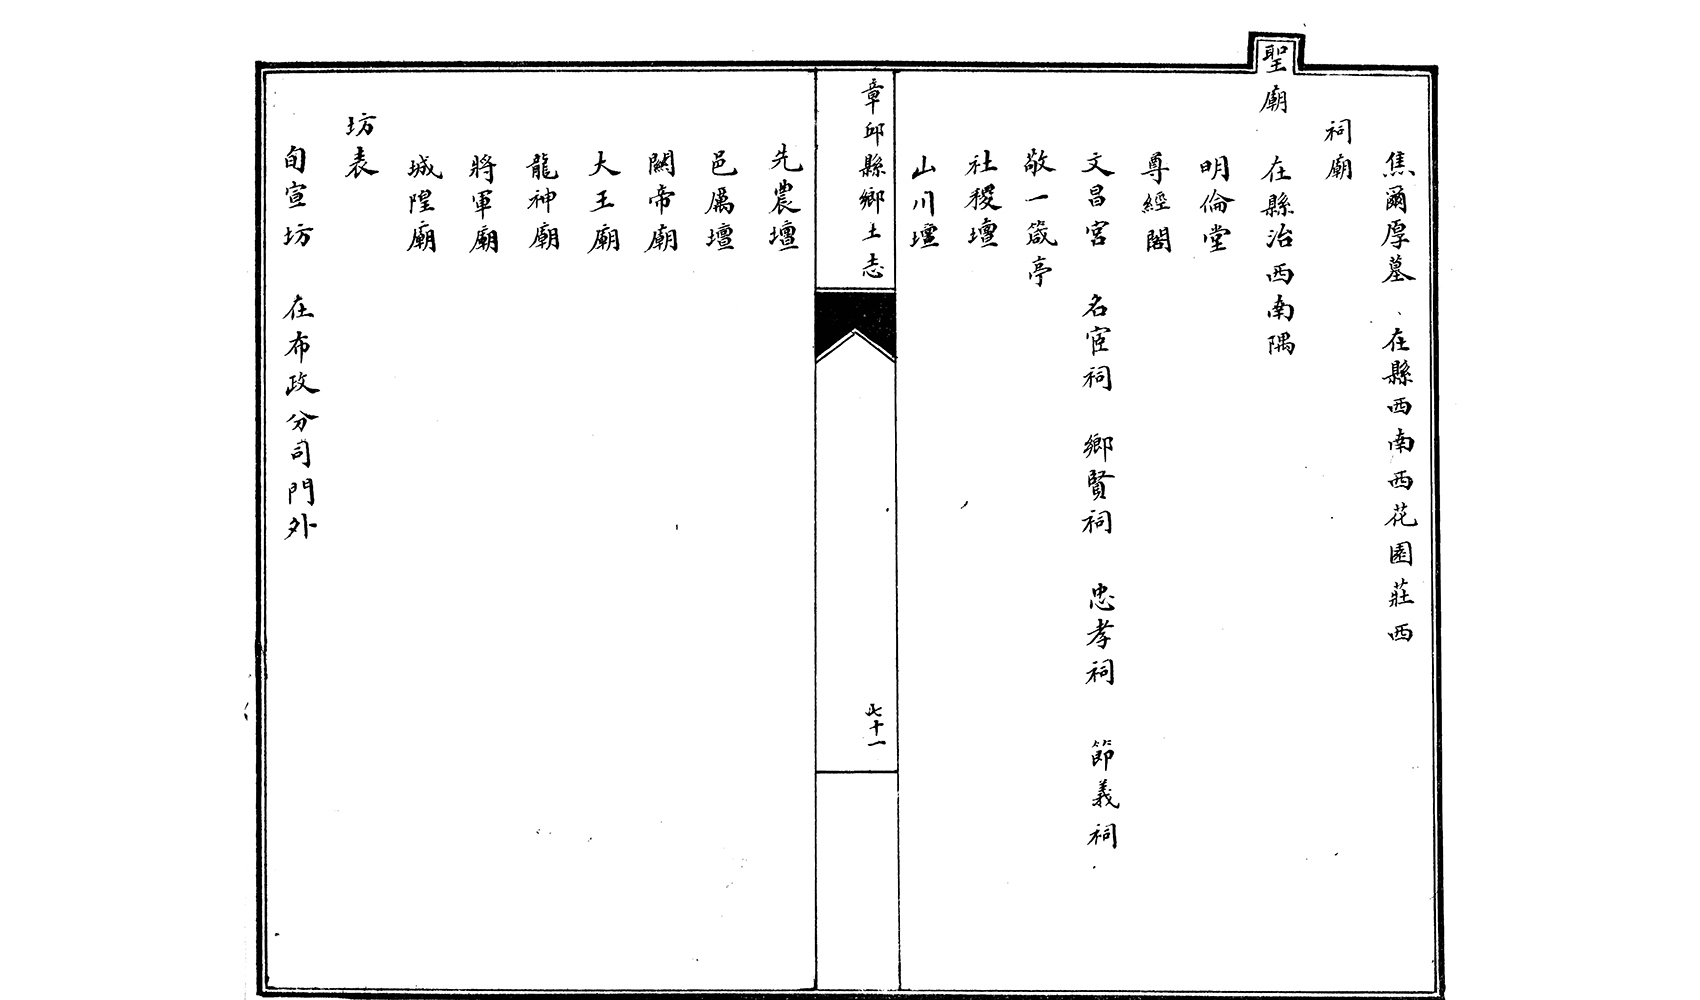 焦爾厚墓 在縣西南西花園莊西
祠廟
聖廟 在縣治西南隅
明倫堂
尊經閣
文昌宮 名宦祠 鄉賢祠 忠孝祠 節義祠
敬一箴亭
社稷壇
山川壇
章邱縣鄉土志
七十一
先農壇
邑厲壇
關帝廟
大王廟
龍神廟
將軍廟
城隍廟
坊表
旬宣坊 在布政分司門外